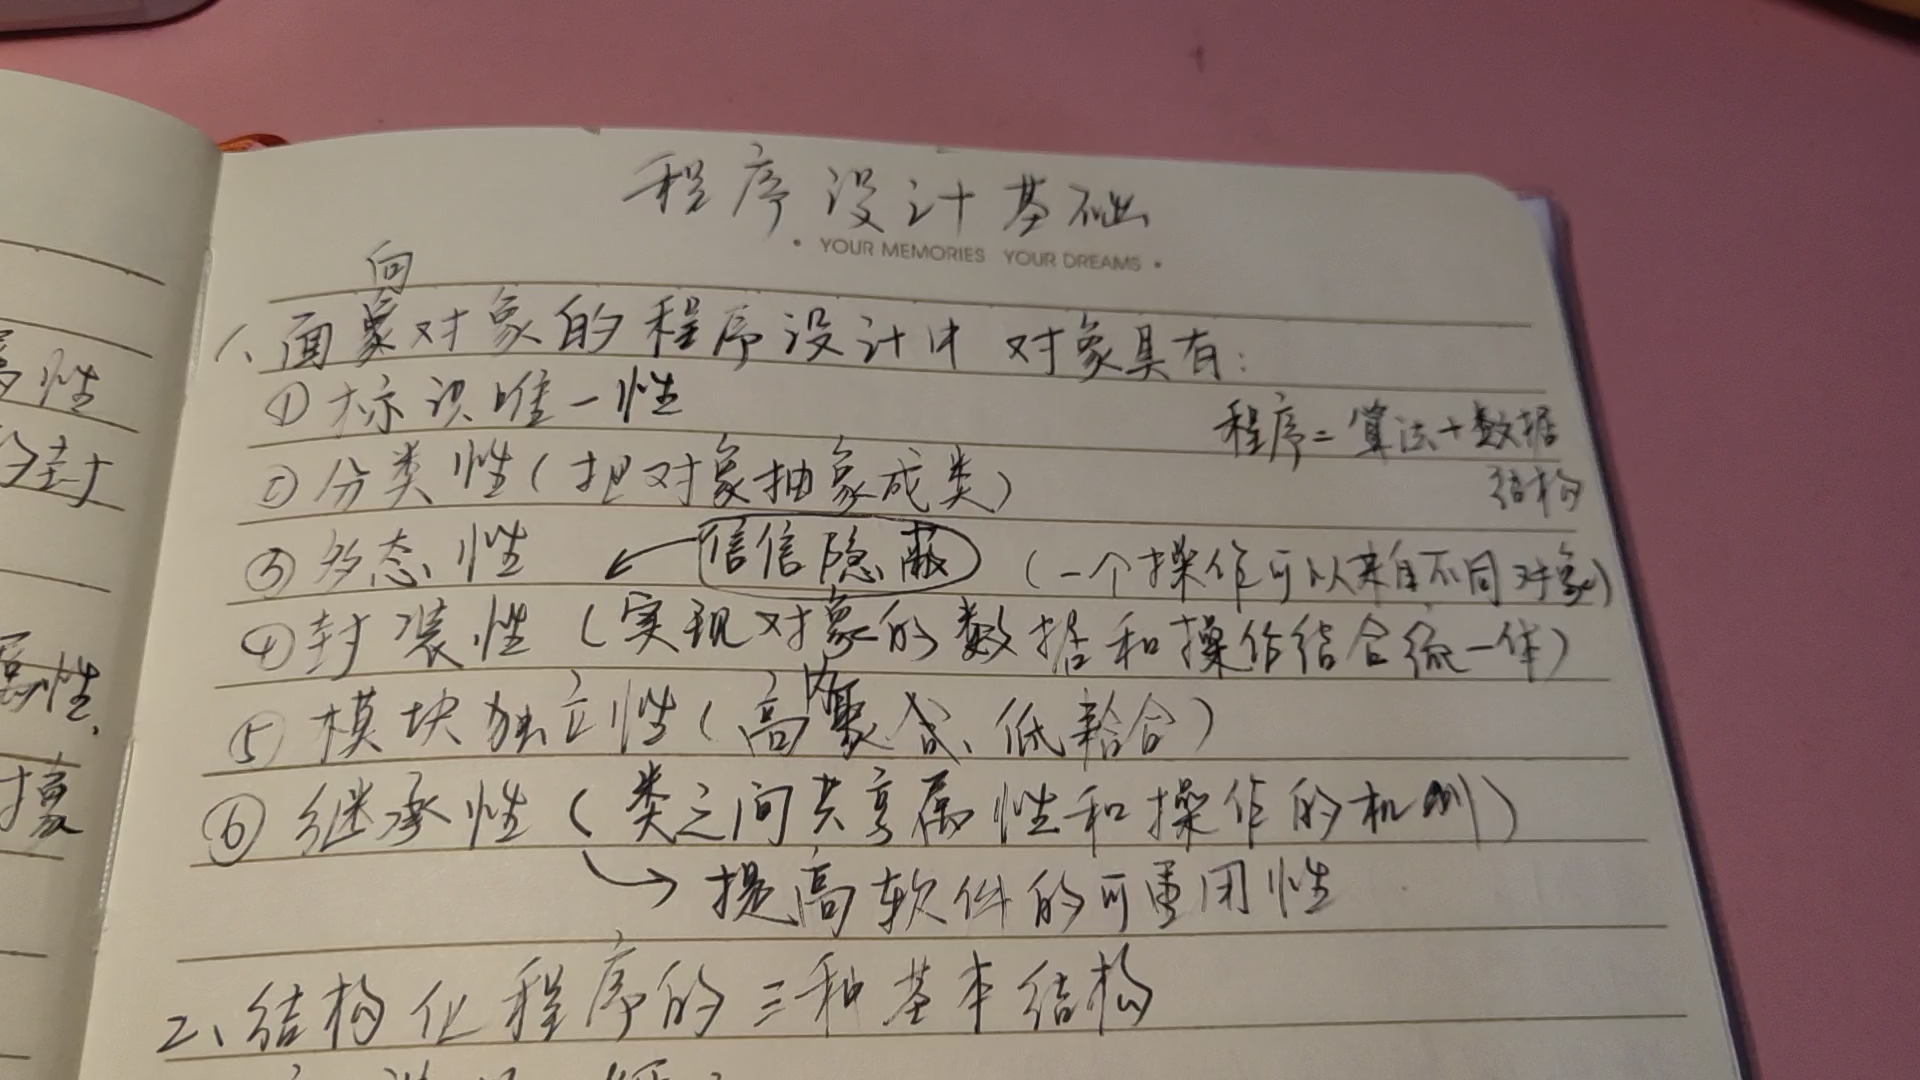 程序设计基础
• YOUR MEMORIES YOUR DREAMS •
向
1、面象对象的程序设计中 对象具有：
① 标识唯一性
程序=算法+数据
结构
② 分类性（把对象抽象成类）
③ 多态性
信信隐蔽
（一个操作可以来自不同对象）
④ 封装性（实现对象的数据和操作结合统一体）
内
⑤ 模块独立性（高聚合、低耦合）
⑥ 继承性（类之间共享属性和操作的机制）
→ 提高软件的可重用性
2、结构化程序的三种基本结构
属性
的封
属性、
象